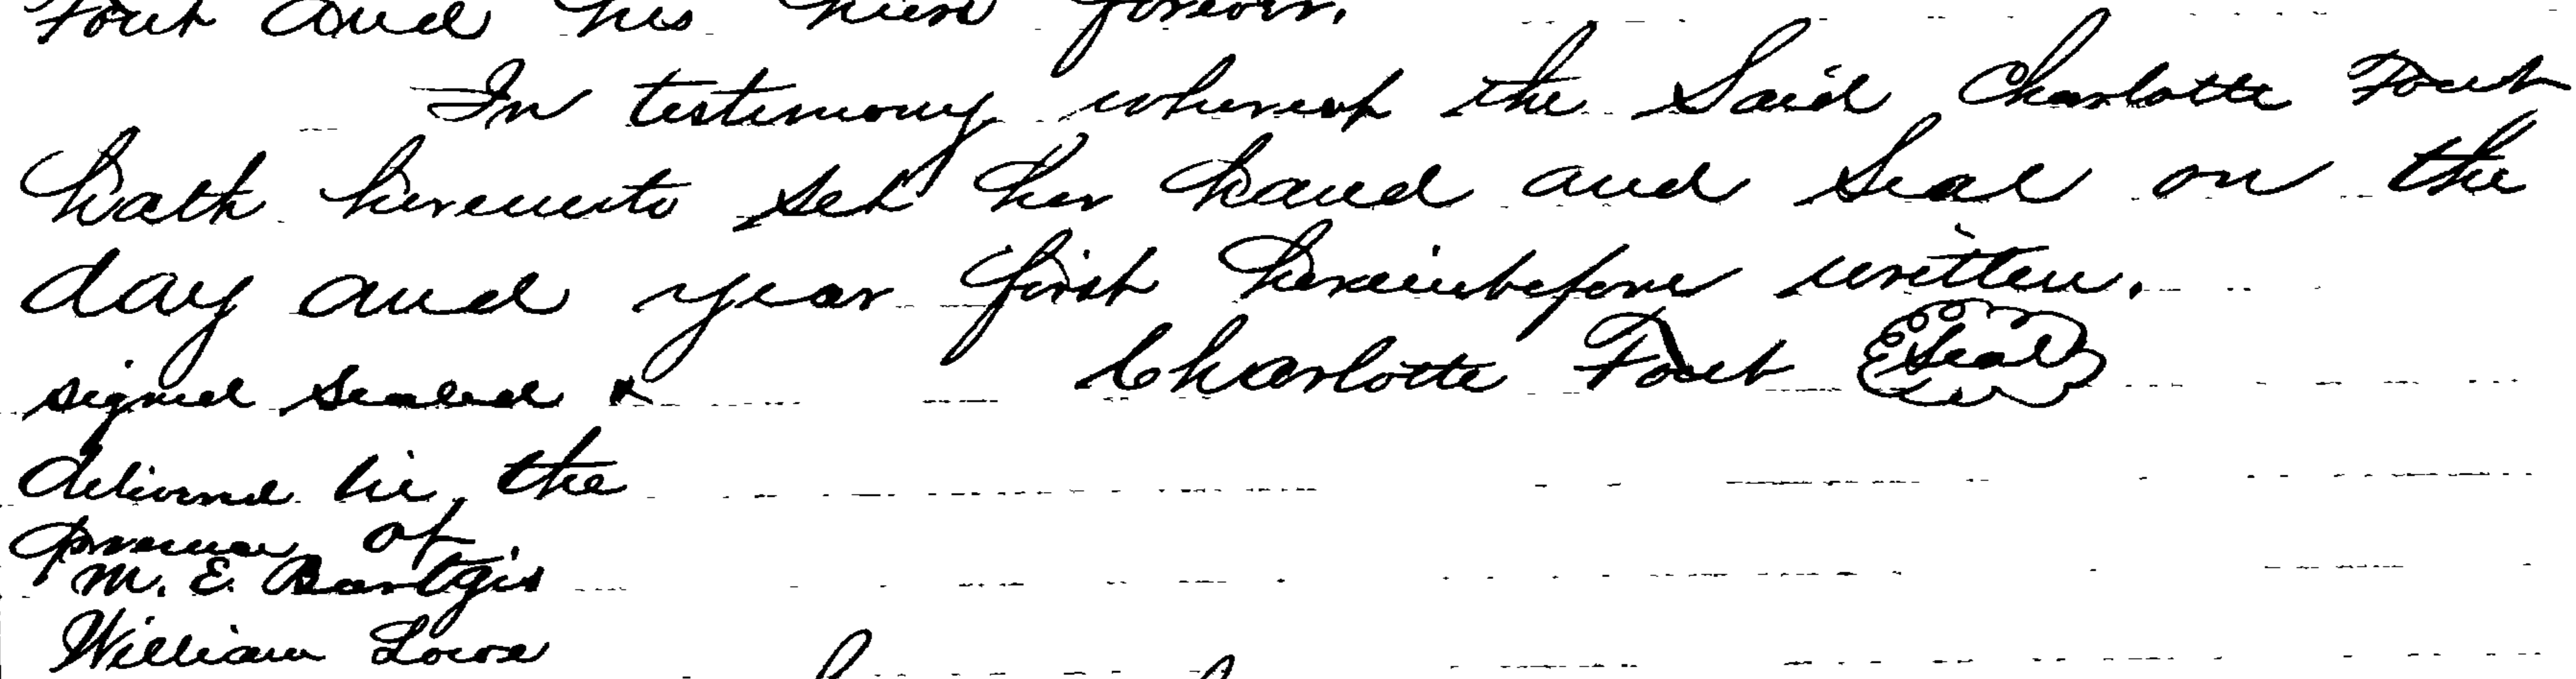 Fout and his heirs forever.
In testimony whereof the Said Charlotte Fout
hath hereunto set her hand and Seal on the
day and year first hereinbefore written.
signed Sealed & Charlotte Fout Seal
delivered in the
presence of
M. E. Bartgis
William Lowe